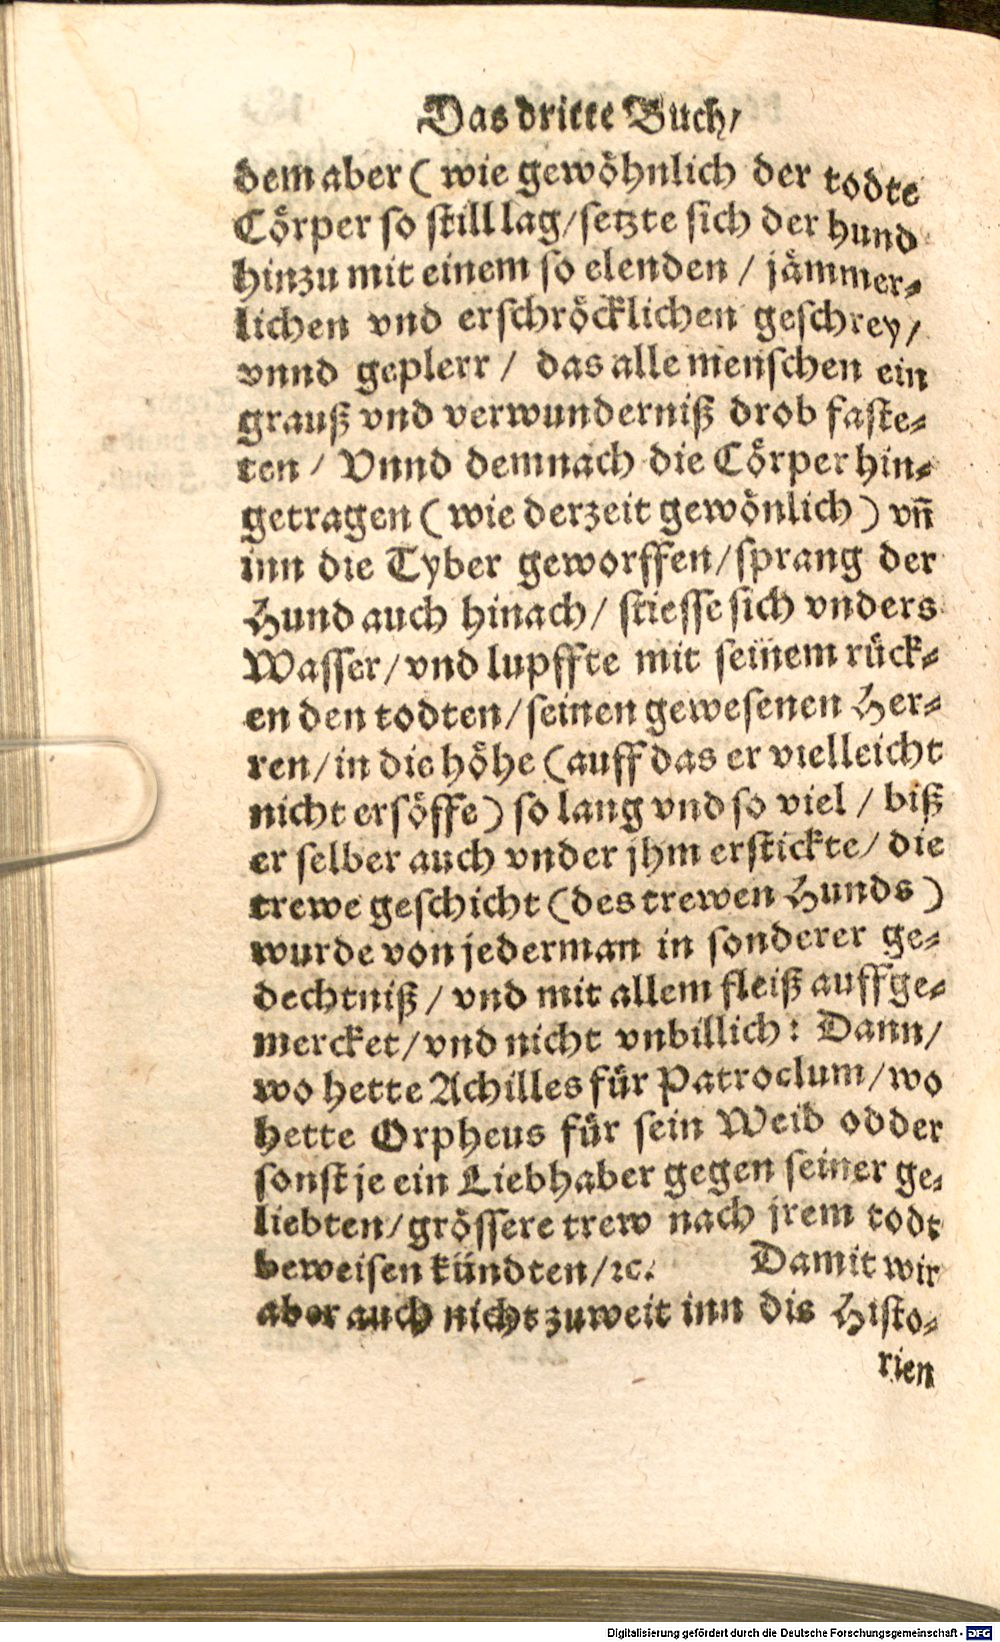 Das dritte Buch/
dem aber ( wie gewöhnlich der todte
Cörper so still lag/setzte sich der hund
hinzu mit einem so elenden / jämmer⸗
lichen vnd erschröcklichen geschrey/
vnnd geplerr / das alle menschen ein
grauß vnd verwunderniß drob faste⸗
ten / Vnnd demnach die Cörper hin⸗
getragen ( wie derzeit gewönlich ) vñ
inn die Tyber geworffen/sprang der
Hund auch hinach/ stiesse sich vnders
Wasser/vnd lupffte mit seinem rück⸗
en den todten/seinen gewesenen Her⸗
ren/in die höhe (auff das er vielleicht
nicht ersöffe) so lang vnd so viel / biß
er selber auch vnder jhm erstickte/ die
trewe geschicht (des trewen Hunds )
wurde von jederman in sonderer ge⸗
dechtniß / vnd mit allem fleiß auffge⸗
mercket/vnd nicht vnbillich: Dann/
wo hette Achilles für Patroclum/wo
hette Orpheus für sein Weib odder
sonst je ein Liebhaber gegen seiner ge⸗
liebten/grössere trew nach jrem todt
beweisen kündten/ꝛc. Damit wir
aber auch nicht zuweit inn dis Histo⸗
rien
Digitalisierung gefördert durch die Deutsche Forschungsgemeinschaft - DFG